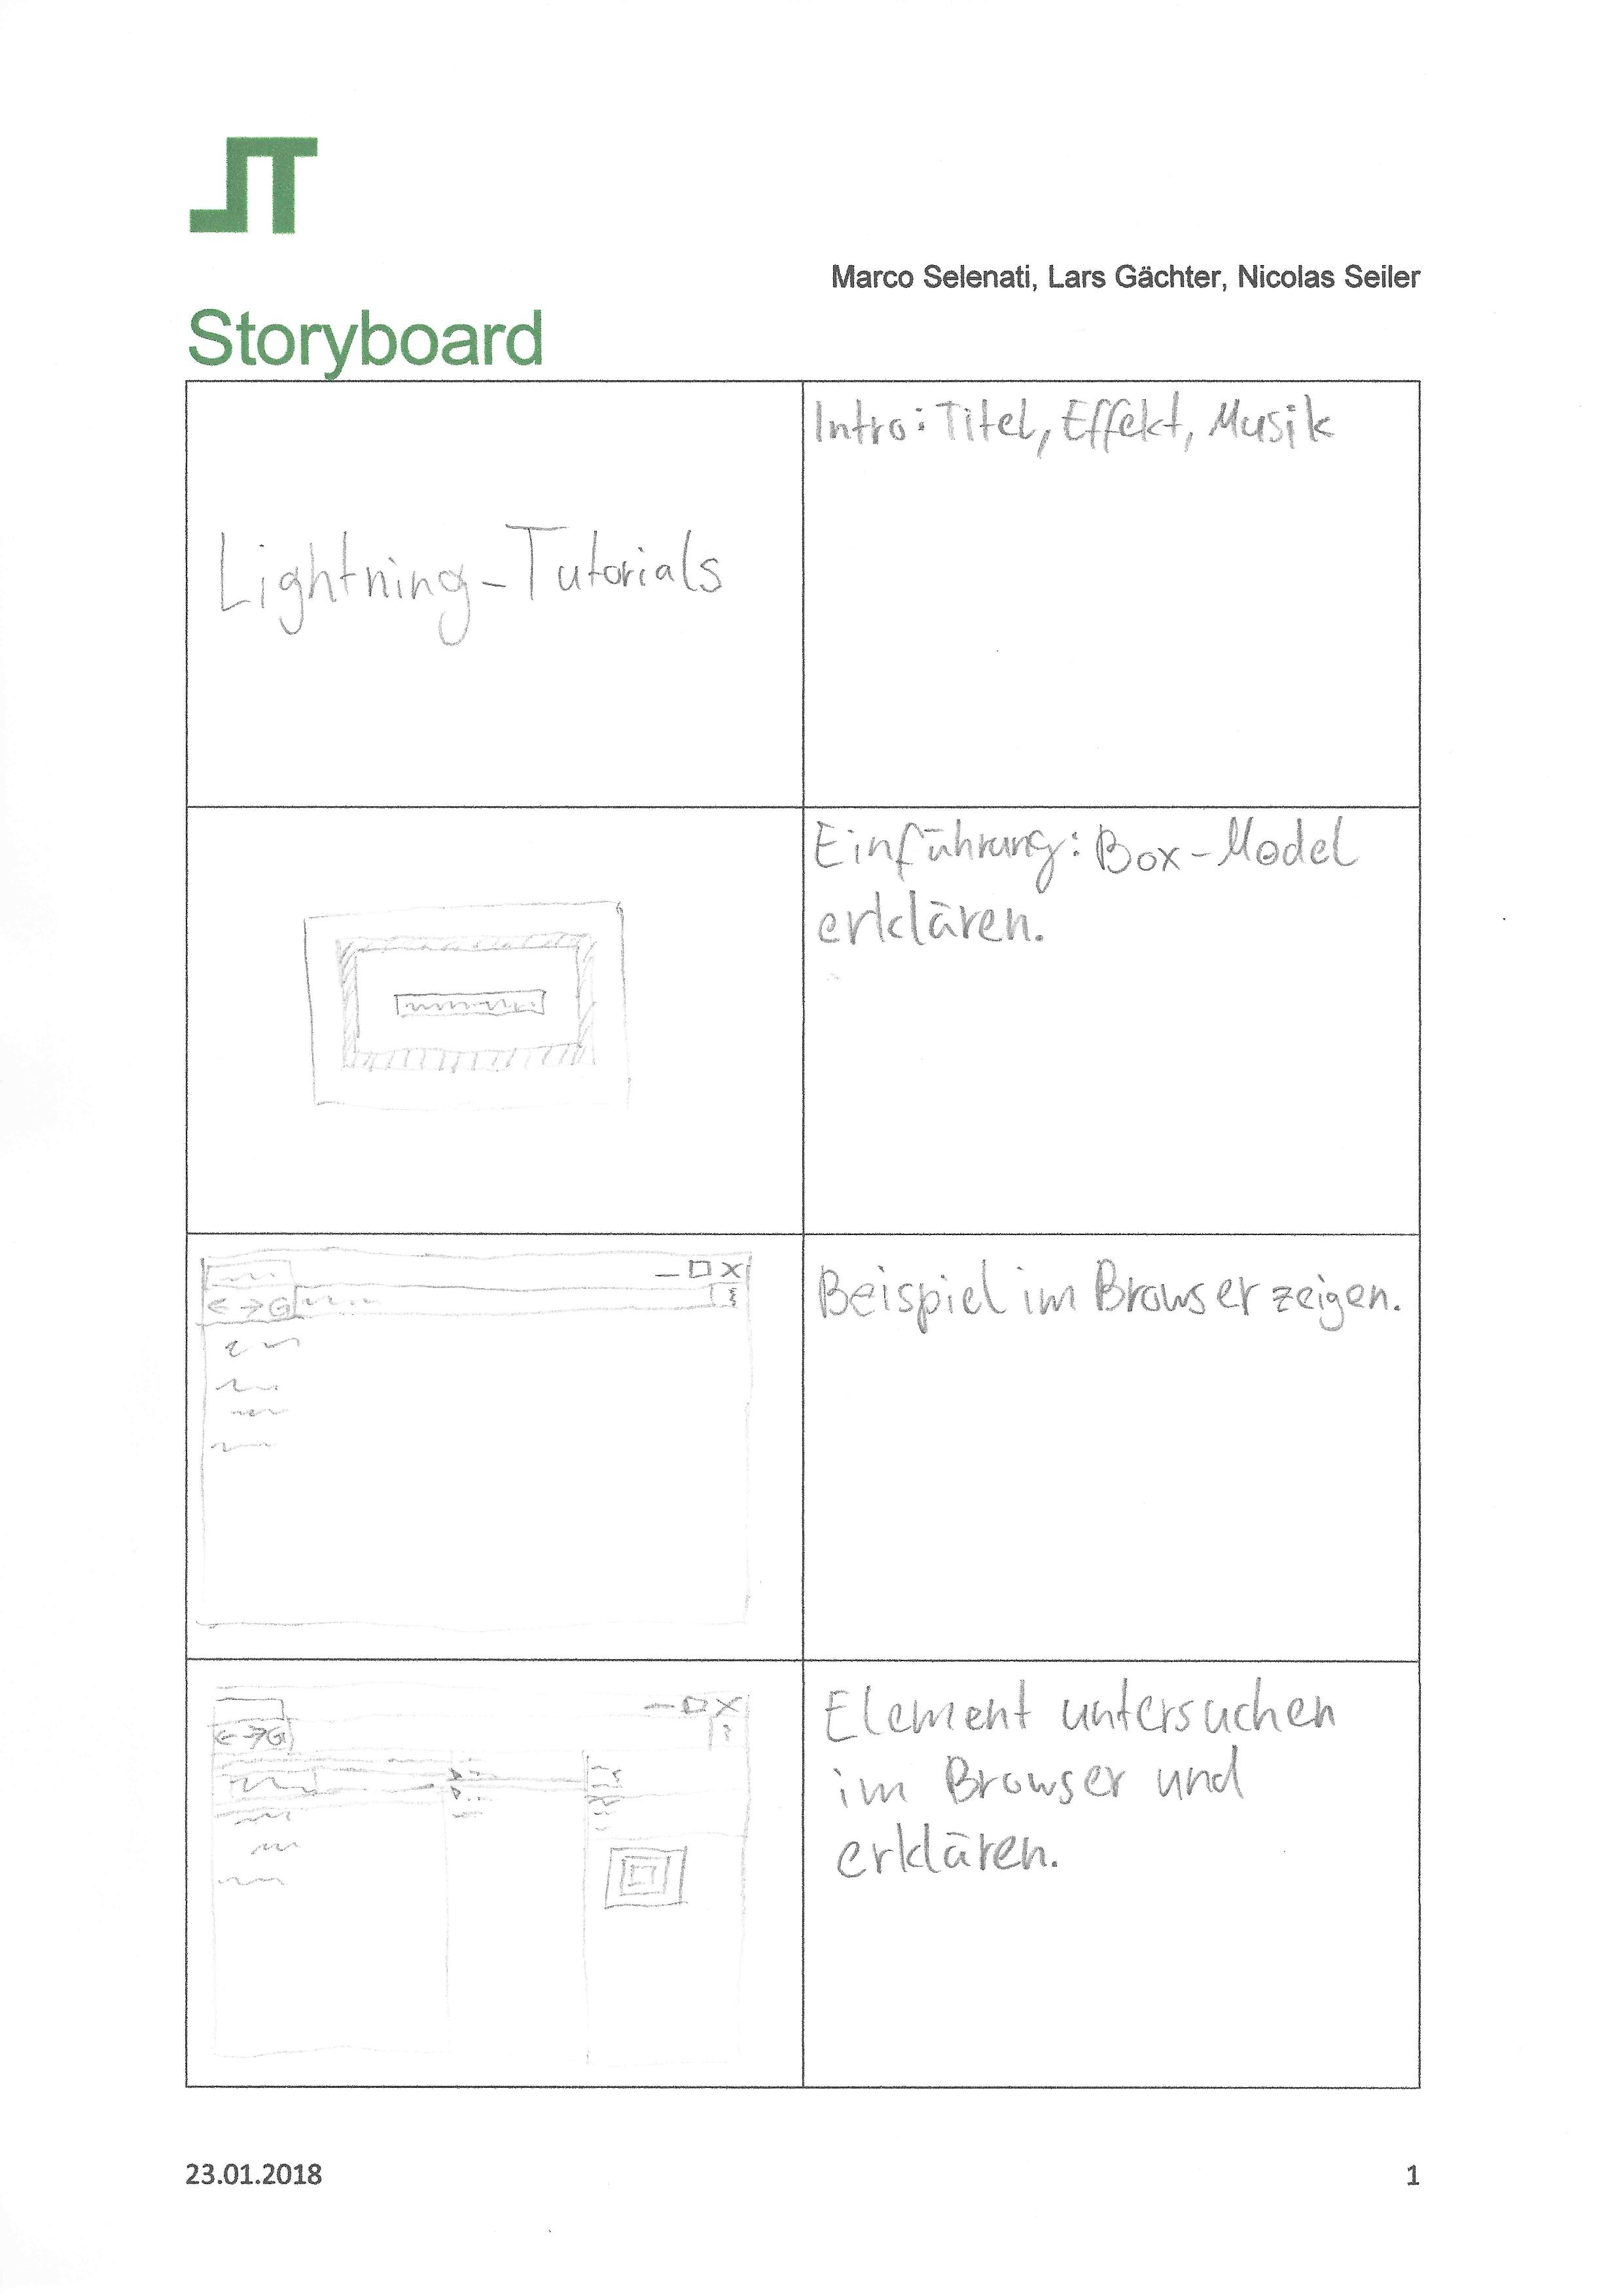 Marco Selenati, Lars Gächter, Nicolas Seiler
Storyboard
Lightning-Tutorials
Intro: Titel, Effekt, Musik
Einführung: Box-Model
erklären.
Beispiel im Browser zeigen.
Element untersuchen
im Browser und
erklären.
23.01.2018
1